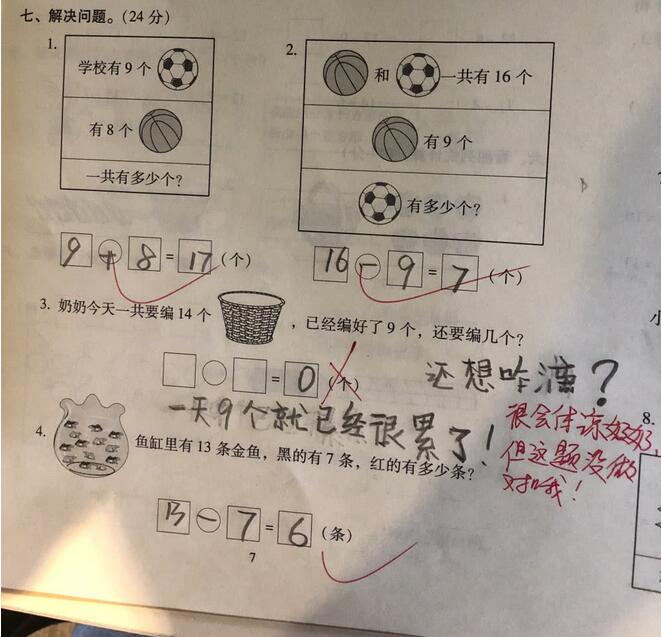 七、解决问题。(24 分)
1.
学校有 9 个
有 8 个
一共有多少个?
9 + 8 = 17 (个)
2.
和 一共有 16 个
有 9 个
有多少个?
16 - 9 = 7 (个)
3. 奶奶今天一共要编 14 个 ,已经编好了 9 个,还要编几个?
= 0 (个)
还想咋滴?
一天9个就已经很累了!
很会体谅奶奶
但这题没做
对哦!
4. 鱼缸里有 13 条金鱼,黑的有 7 条,红的有多少条?
13 - 7 = 6 (条)
7
8.